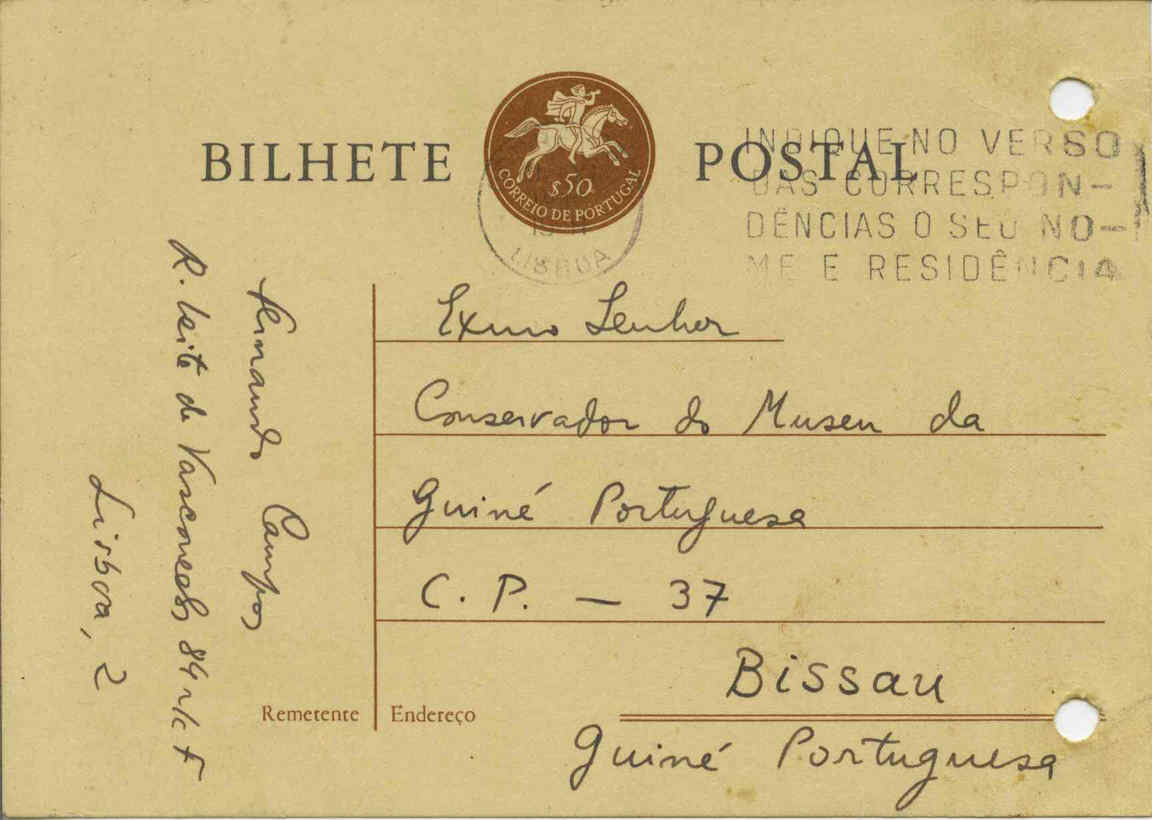 BILHETE POSTAL
$50
CORREIO DE PORTUGAL
LISBOA
INDIQUE NO VERSO
DAS CORRESPON-
DÊNCIAS O SEU NO-
ME E RESIDÊNCIA
Exmo Senhor
Conservador do Museu da
Guiné Portuguesa
C. P. — 37
Bissau
Guiné Portuguesa
Remetente
Endereço
Fernando Campos
R. Leite de Vasconcelos 84 r/c
Lisboa, 2